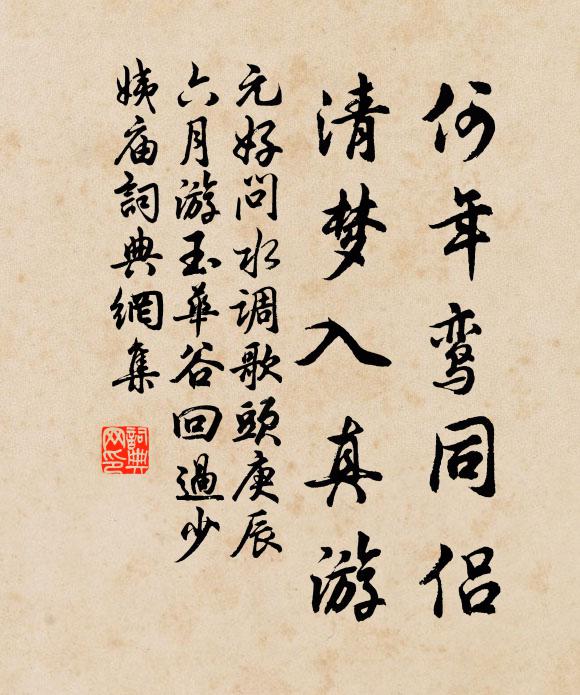 何年鸾同侣
清梦入真游
元好问水调歌头庚辰
六月游玉華谷回過少
姨庙詞典網集
詞典
网印